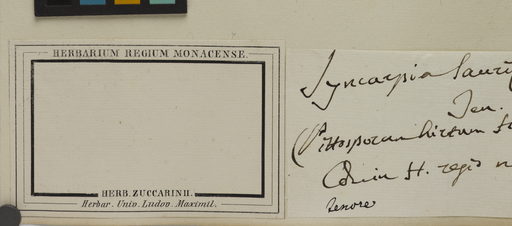 HERBARIUM REGIUM MONACENSE.
HERB. ZUCCARINII.
Herbar. Univ. Ludov. Maximil.
Syncarpia Lauri
Ten.
(Pittosporum hirtum
h. regio
tenore